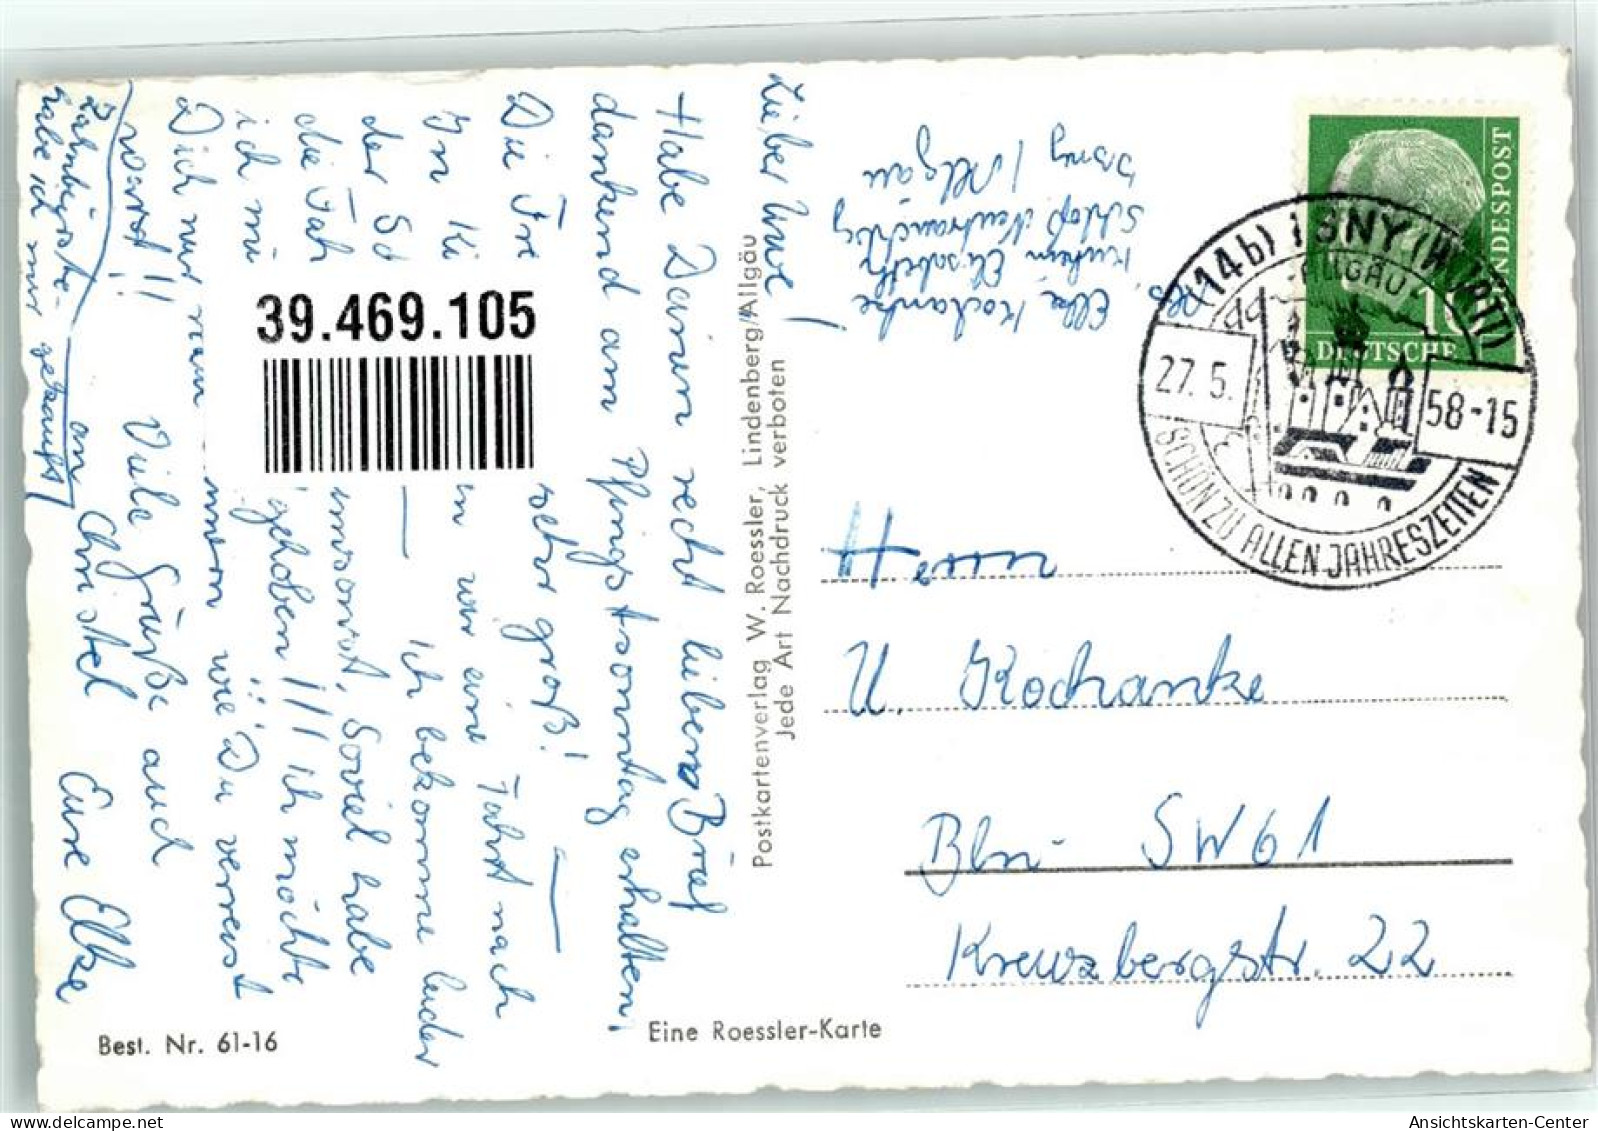 Lieber Uwe!
Habe Deinen recht lieben Brief
dankend am Pfingstsonntag erhalten.
Die Fre sehr groß!
In Ki wir eine Fahrt nach
der So — Ich bekomme leider
die Fah umsonst, Soviel habe
ich mi gehoben !!! Ich möchte
Dich nur wenn wie Du verreist
warst!!
Viele Grüße auch
an Christel Eure Elke
Zahnbürste
habe ich mir gekauft
Abs. Elke Kochanke
Kinderh. Elisabeth
Schloß Neutrauchburg
Isny / Allgäu
Postkartenverlag W. Roessler, Lindenberg/Allgäu
Jede Art Nachdruck verboten
39.469.105
Best. Nr. 61-16
Eine Roessler-Karte
DEUTSCHE BUNDESPOST
10
(14b) ISNY (WÜRTT)
ALLGÄU
27.5. 58-15
SCHÖN ZU ALLEN JAHRESZEITEN
Herrn
U. Kochanke
Bln- SW 61
Kreuzbergstr. 22
Ansichtskarten-Center